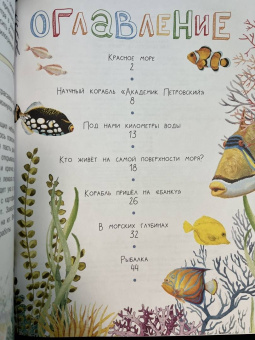 ОГЛАВЛЕНИЕ
Красное море
2
Научный корабль «Академик Петровский»
8
Под нами километры воды
13
Кто живёт на самой поверхности моря?
18
Корабль пришёл на «банку»
26
В морских глубинах
32
Рыбалка
44